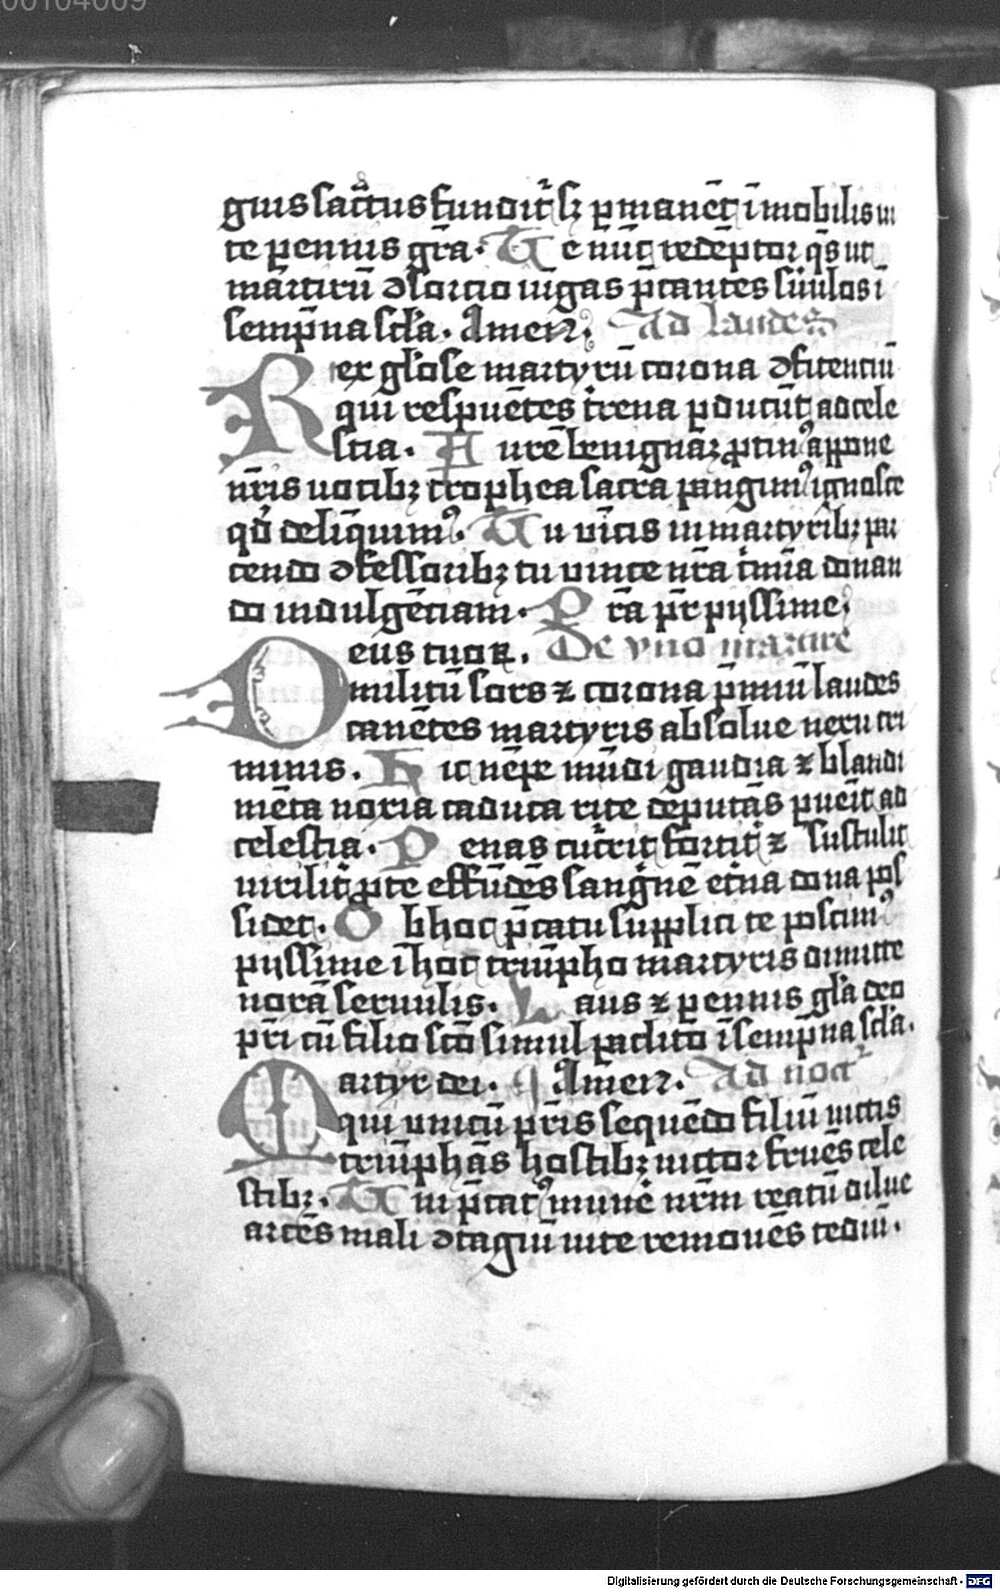 00104009
guis sac̄tus fundit᷑ sʒ p̱manēt īmobilis ui
te pennis gr̄a. Te nūc redēptor qs̄ ut
mārtirū ꝯsorcio iūgas p̄cantes suūlos ī
semp̄na sc̄la. Amen. Ad laudes
Rex glōse martyrū corona ꝯfitenciū
qui respuētes t̄rena ꝑducūt ad cele
stia. Aurē benignāʒ ꝓtinꝰ appone
nr̄is uocibʒ trophea sacra pangimꝰ ignosce
qd̄ deliquimꝰ. Tu uīcis in martyribʒ par
cendo ꝯfessoribʒ tu uince nr̄a c̄mīa donan
do indulgēciam. Pr̄a pr̄ pijssime.
Deus tuoꝝ. De vno martire
militū sors ⁊ corona p̄miū laudes
canētes martyris absolue nexu cri
minis. Hic nēpe mūdi gaudia ⁊ blandi
mēta noxia caduca rite dēputās ꝑuēit ad
celestia. Penas cucr̄it fortit᷑ ⁊ sustulit
uirilit᷑ ꝓ te effūdēs sanguinē et̄na dona pos
sidet. Ob hoc p̄catu supplici te poscimꝰ
pijssime ī hoc triūpho martyris dimitte
noxā seruulis. Laus ⁊ pennis gl̄a deo
pr̄i cū filio sc̄o simul paclito ī semp̄na sc̄la.
Martyr dei. ¶ Amen. Ad noct᷑
qui unicū pr̄is sequēdo filiū uictis
triūphās hostibʒ uictor fruēs cele
stibʒ. Tui p̄catꝰ mune᷑ nr̄m reatū dilue
arcēs mali ꝯtagiū uite remouēs tediū.
Digitalisierung gefördert durch die Deutsche Forschungsgemeinschaft - DFG